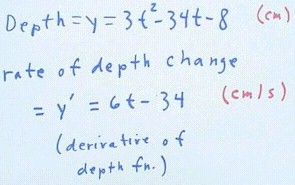 Depth = y = 3t²-34t-8 (cm)
rate of depth change
= y' = 6t-34 (cm/s)
(derivative of
depth fn.)